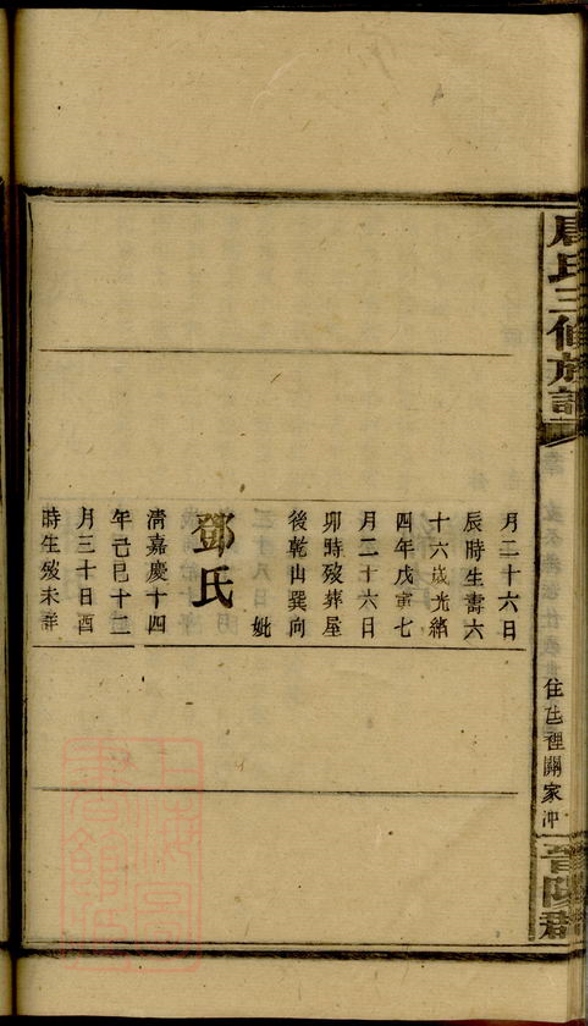 唐氏三修族譜
住芭裡關家冲
晉陽郡
月二十六日
辰時生壽六
十六歲光緒
四年戊寅七
月二十六日
卯時殁葬屋
後乾山巽向
妣
鄧氏
清嘉慶十四
年己巳十二
月三十日酉
時生殁未詳
上海圖書館藏